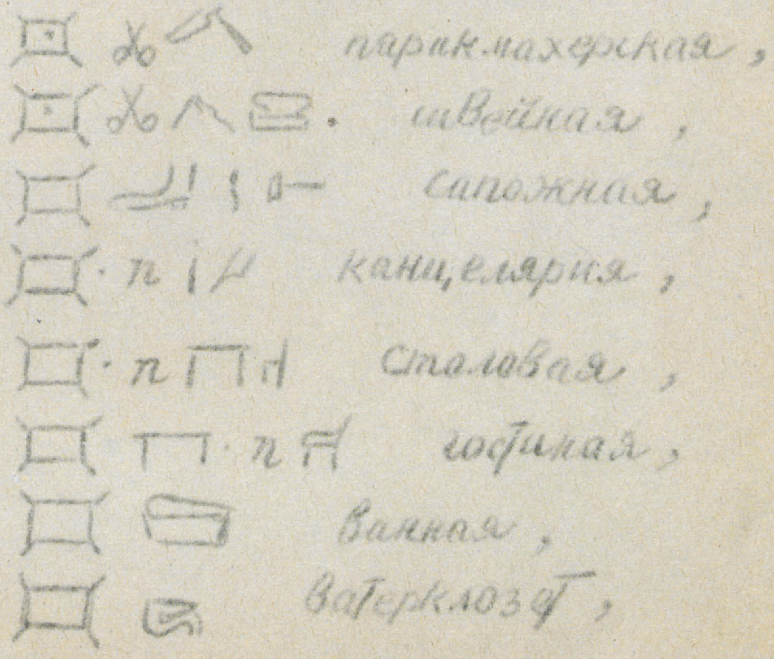 парикмахерская,
швейная,
сапожная,
п канцелярия,
п столовая,
п гостиная,
ванная,
ватерклозет,